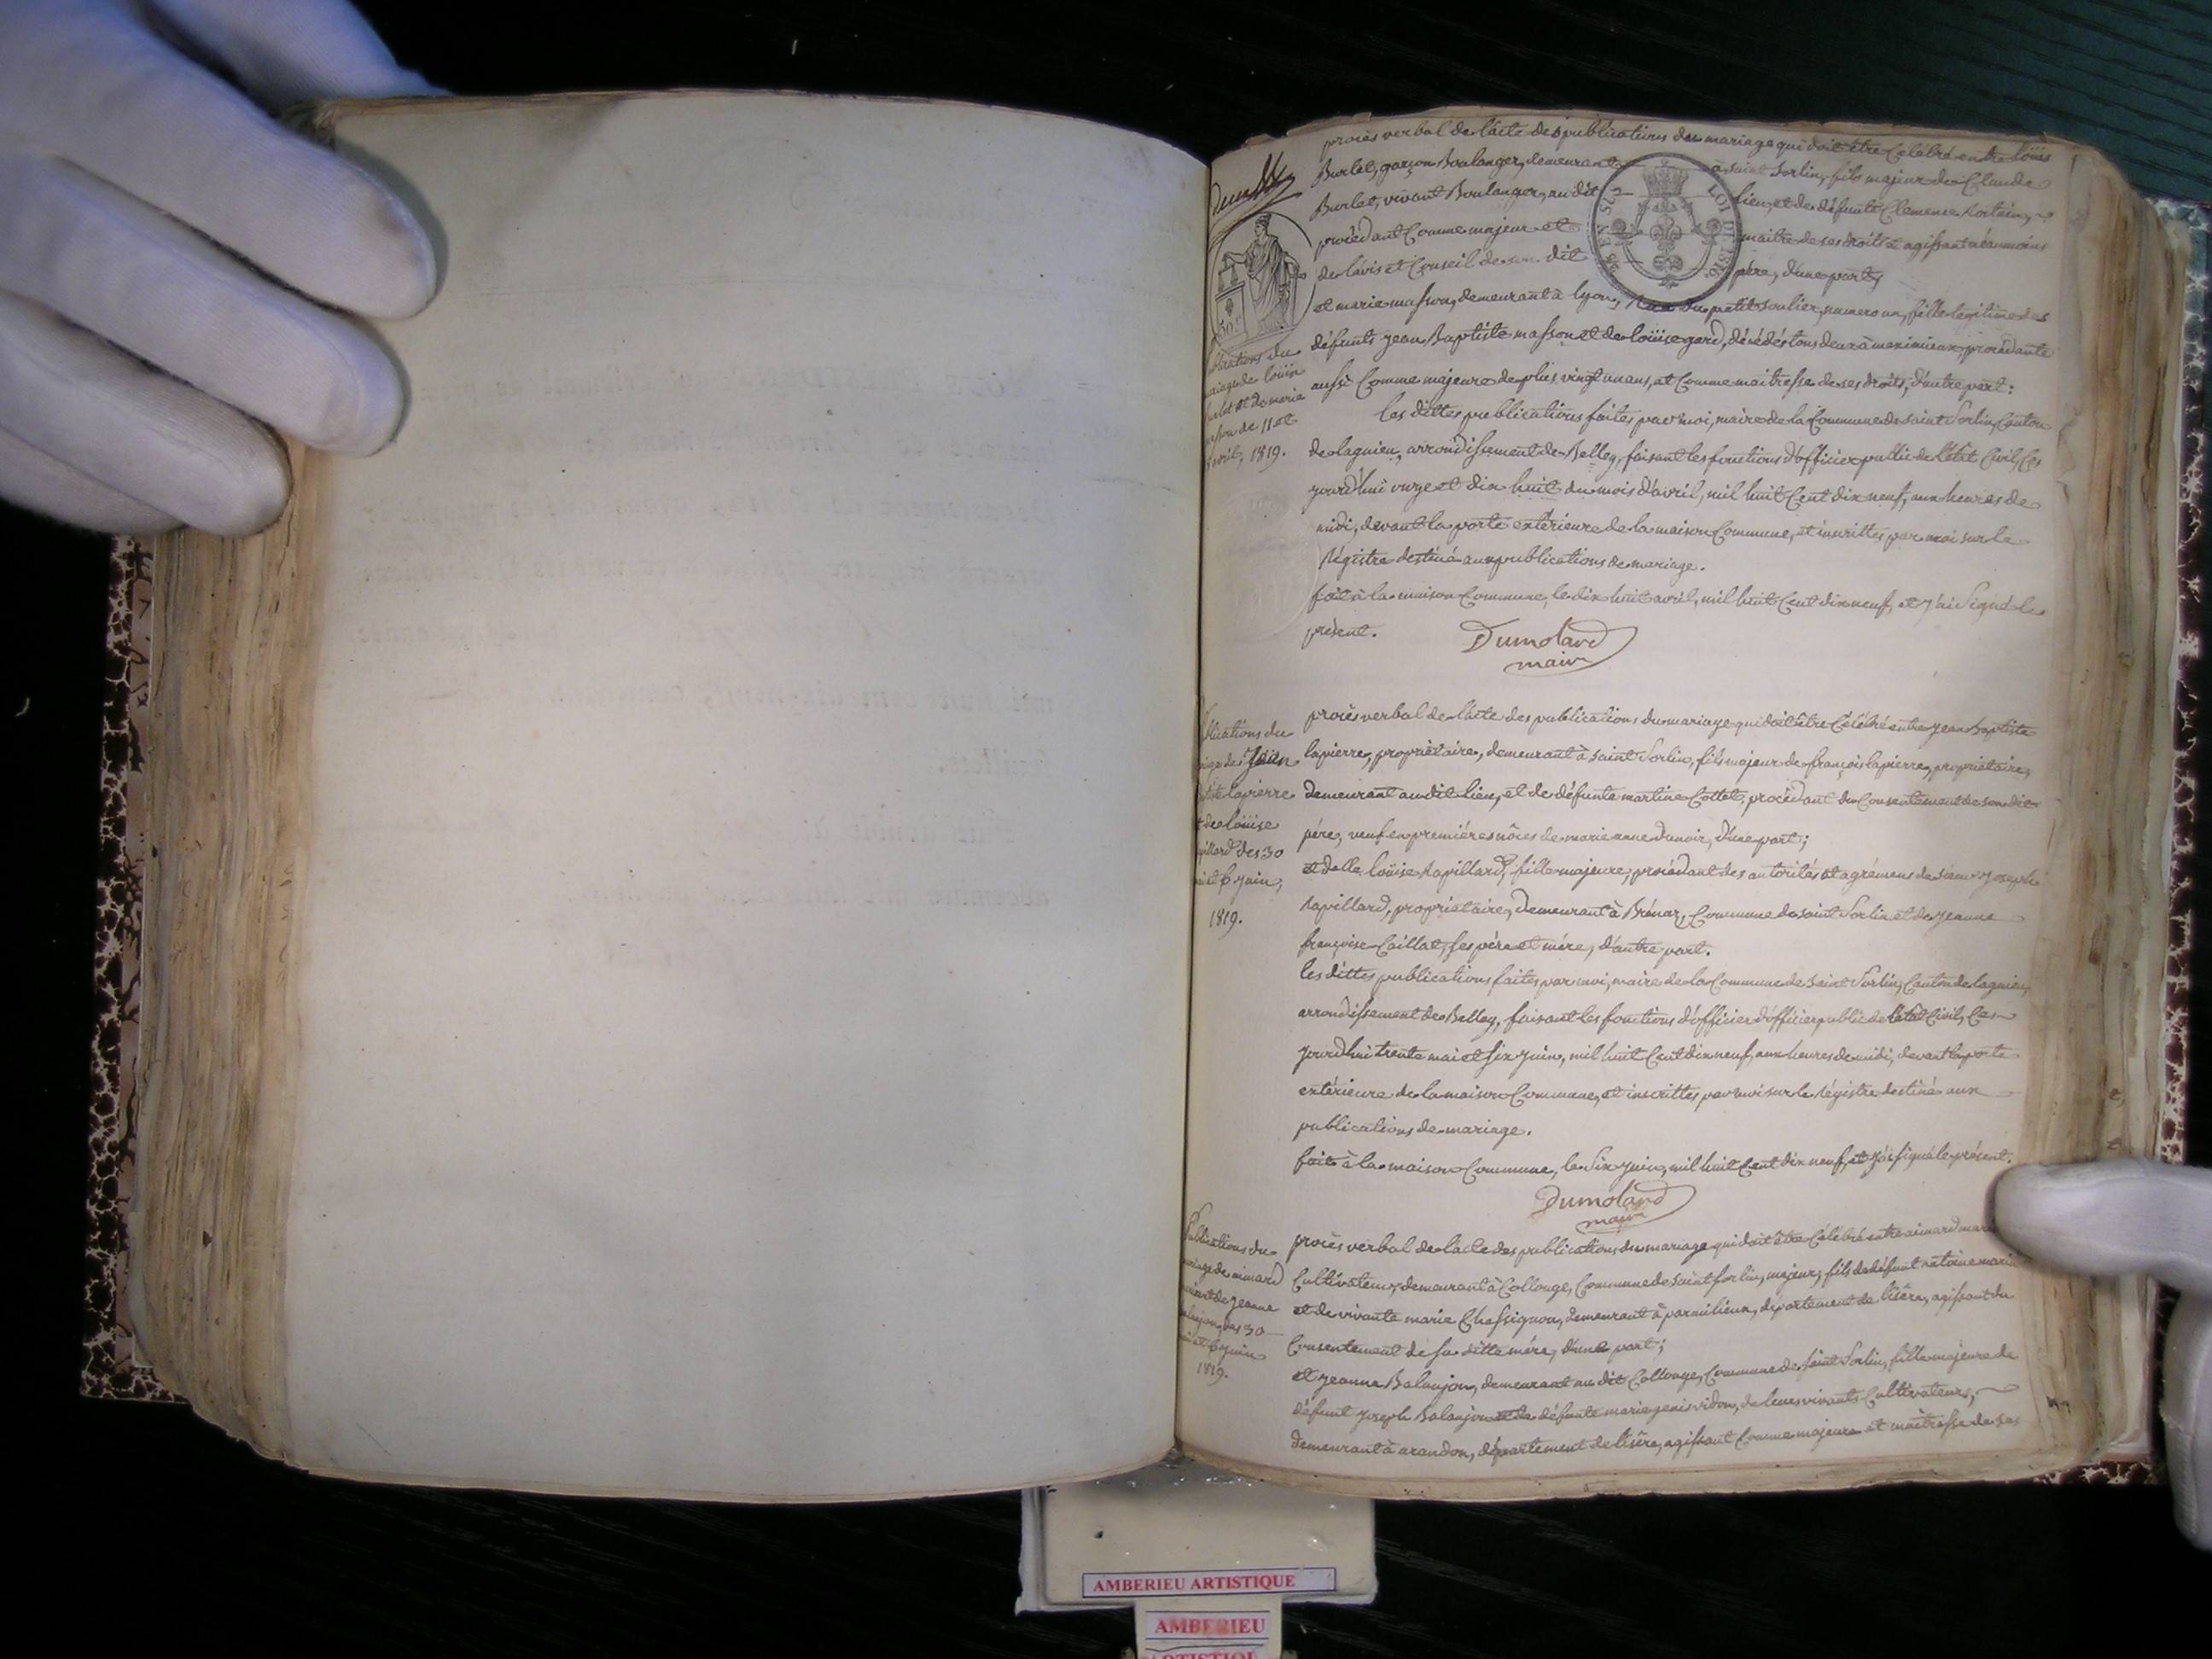 procès verbal de l'acte des publications du mariage qui doit être Célébré entre loüis
Burlet, garçon Boulanger, demeurant à Saint Sorlin, fils majeur de Claude
Burlet, vivant Boulanger, au dit lieu, et de défunte Clemence
procédant Comme majeur et maitre de ses droits et agissant néanmoins
de l'avis et Conseil de son dit père, d'une part;
et marie masson, demeurant à lyon, Rue du petit soulier, numero un, fille légitime des
défunts jean Baptiste masson et de loüise gord, décédés tous deux à meximieux, procédante
aussi Comme majeure de plus vingt un ans, et Comme maitresse de ses droits, d'autre part:
les dittes publications faites par moi, maire de la Commune de saint Sorlin, Canton
de lagnieu, arrondissement de Belley, faisant les fonctions d'officier public de l'état Civil, Ce
jourd'hui onze et dix huit du mois d'avril, mil huit Cent dix neuf, aux heures de
midi, devant la porte extérieure de la maison Commune, et inscrittes par moi sur le
Régistre destiné aux publications de mariage.
fait à la maison Commune, le dix huit avril, mil huit Cent dix neuf, et j'ai Signé le
présent.
Dumolard
maire
50 c
de loüis
et de marie
de 11 et
avril, 1819.
procès verbal de l'acte des publications du mariage qui doit être Célébré entre jean Baptiste
lapierre, propriétaire, demeurant à Saint Sorlin, fils majeur de françois lapierre, propriétaire,
demeurant au dit lieu, et de défunte martine Cottet, procédant du Consentement de son dit
père, veuf en premières nôces de marie anne dunoir, d'une part;
et delle loüise Rapillard, fille majeure, procédant des autorités et agrémens de sieur joseph
Rapillard, propriétaire, demeurant à Brénaz, Commune de saint Sorlin et de jeanne
françoise Caillat, ses père et mère, d'autre part.
les dittes publications faites par moi, maire de la Commune de Saint Sorlin, Canton de lagnieu,
arrondissement de Belley, faisant les fonctions d'officier d'officier public de l'état Civil, Ce
jourd'hui trente mai et six juin, mil huit Cent dix neuf, aux heures de midi, devant la porte
extérieure de la maison Commune, et inscrittes par moi sur le Régistre destiné aux
publications de mariage.
fait à la maison Commune, le Six juin, mil huit Cent dix neuf, et j'ai signé le présent.
Dumolard
maire
Jean
lapierre
de loüise
des 30
6 juin,
1819.
procès verbal de l'acte des publications du mariage qui doit être Célébré entre aimard
Cultivateur, demeurant à Collonge, Commune de saint Sorlin, majeur, fils de défunt antoine
et de vivante marie Chassignon, demeurant à parmilieux, département de l'isère, agissant du
Consentement de sa ditte mère, d'une part;
et jeanne Balanjon, demeurant au dit Collonge, Commune de saint Sorlin, fille majeure de
défunt joseph Balanjon et de défunte marie vidon, de leurs vivants Cultivateurs,
demeurant à arandon, département de l'isère, agissant Comme majeure et maîtresse de ses
Publications du
de aimard
de jeanne
30
6 juin
1819.
AMBERIEU ARTISTIQUE
AMBERIEU
ARTISTIQUE